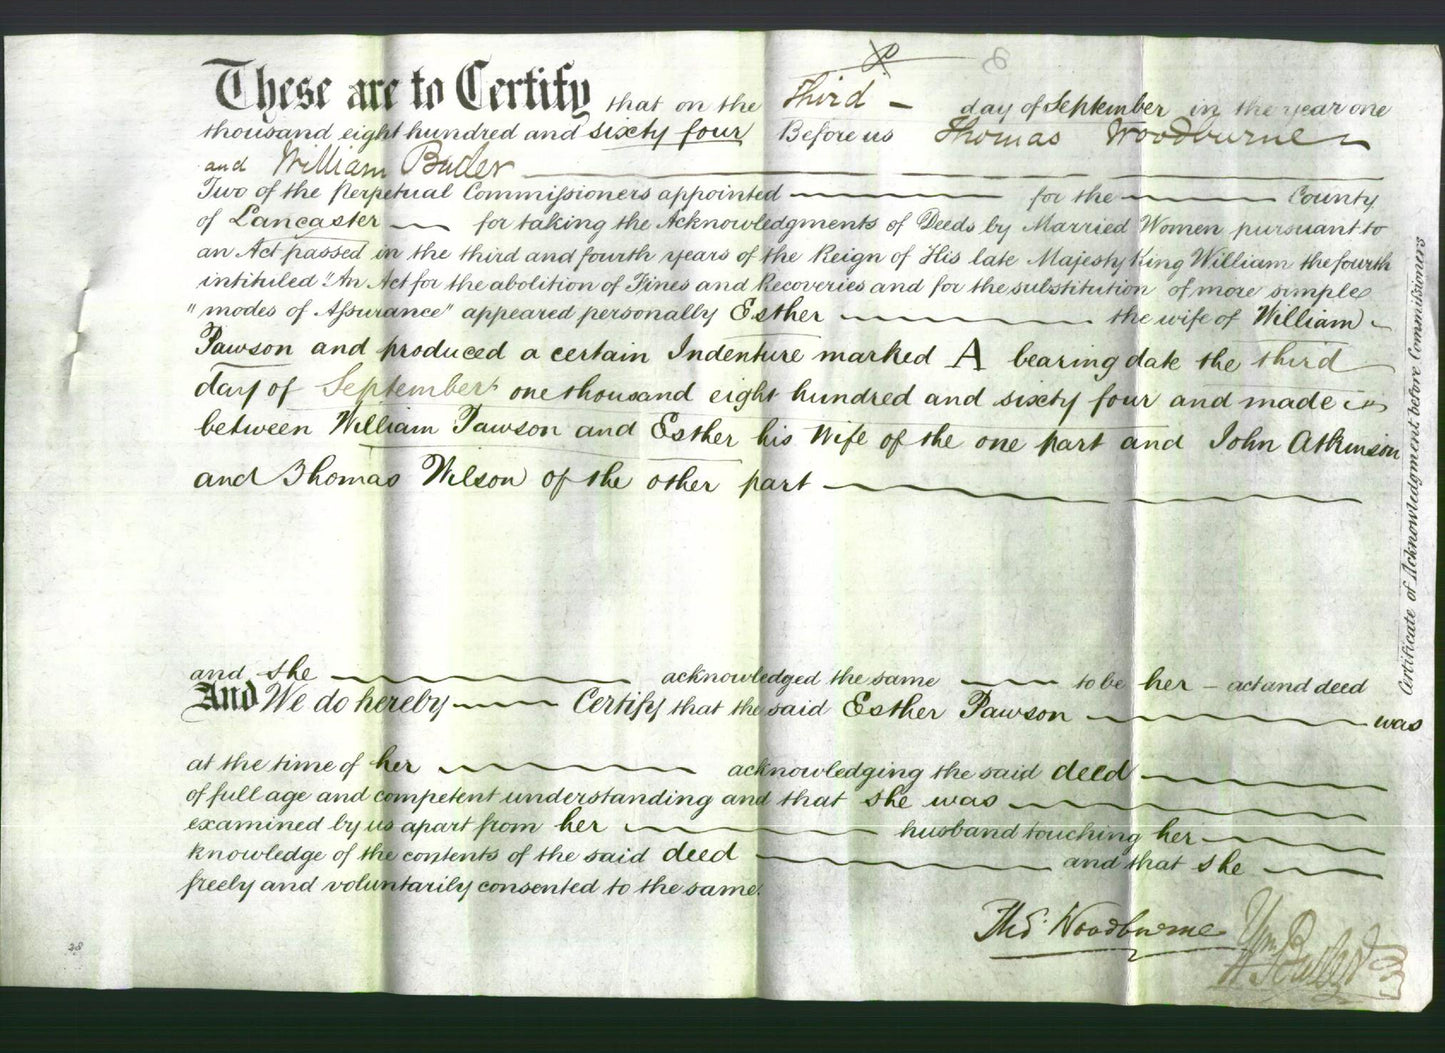 These are to Certify that on the third day of September in the year one
thousand eight hundred and sixty four Before us Thomas Woodburne
and William Butler
Two of the Perpetual Commissioners appointed for the County
of Lancaster for taking the Acknowledgments of Deeds by Married Women pursuant to
an Act passed in the third and fourth years of the Reign of His late Majesty King William the fourth
intituled "An Act for the abolition of Fines and Recoveries and for the substitution of more simple
"modes of Assurance" appeared personally Esther the wife of William
Pawson and produced a certain Indenture marked A bearing date the third
day of September one thousand eight hundred and sixty four and made
between William Pawson and Esther his Wife of the one part and John Atkinson
and Thomas Wilson of the other part
and she acknowledged the same to be her act and deed
And We do hereby Certify that the said Esther Pawson was
at the time of her acknowledging the said deed
of full age and competent understanding and that she was
examined by us apart from her husband touching her
knowledge of the contents of the said deed and that she
freely and voluntarily consented to the same.
Thos. Woodburne
Wm Butler
Certificate of Acknowledgment before Commissioners
28